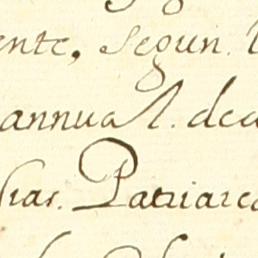 ente, segun.
annual. de
siar. Patriarc